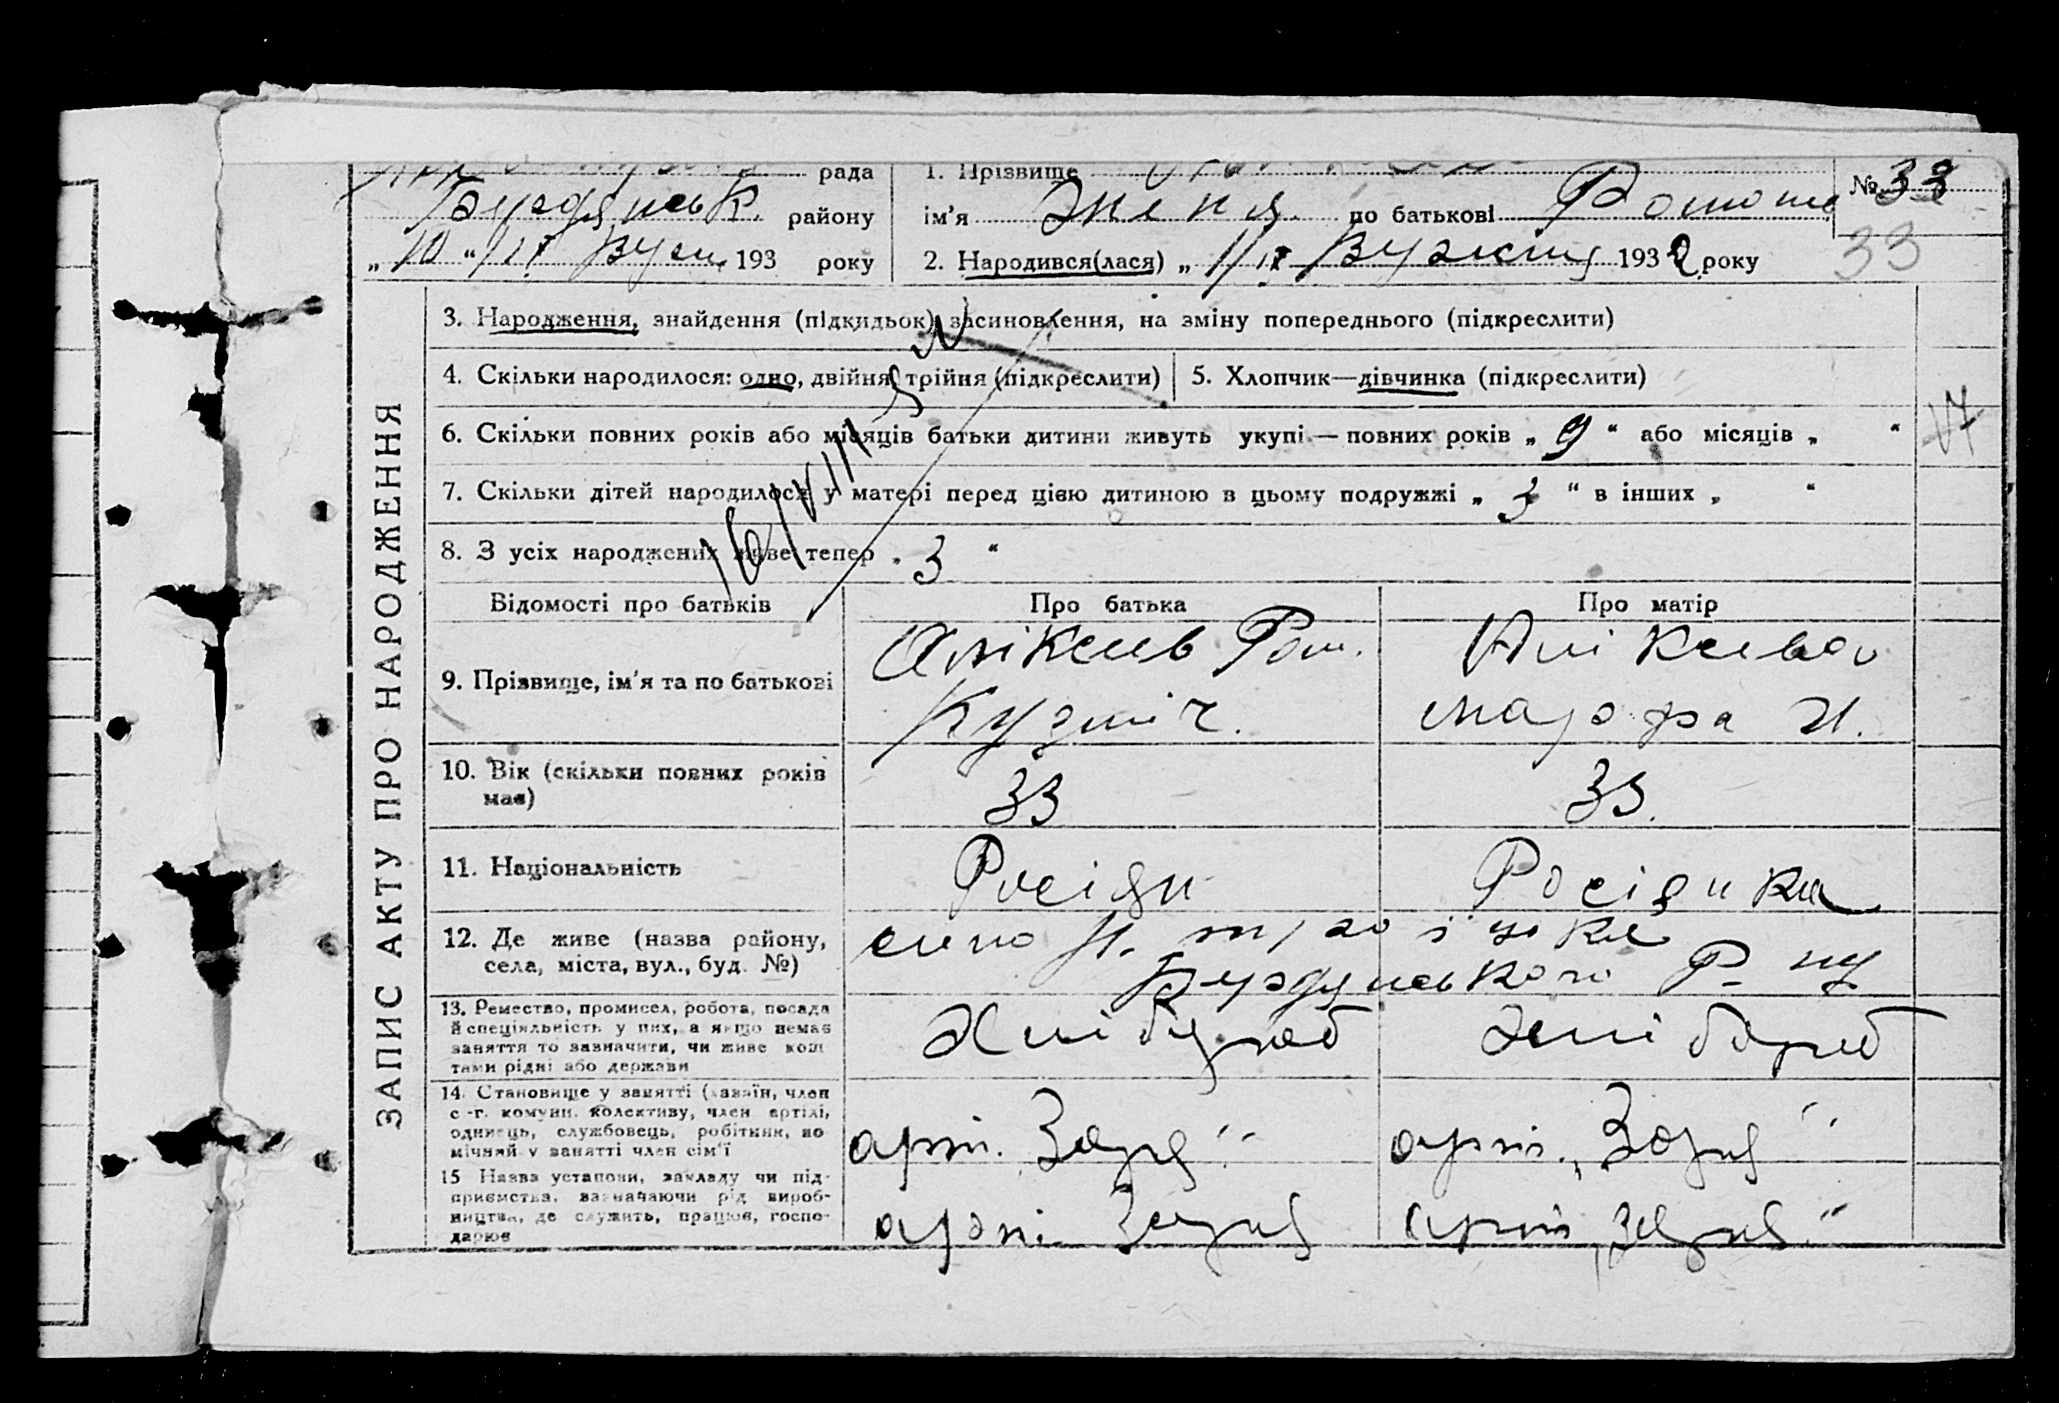 рада
Бурдянськ. району
„ 10 “ 193 року
1. Прізвище
ім’я Женя по батькові
2. Народився(лася) „ 1/ 193 2 року
№ 33
33
ЗАПИС АКТУ ПРО НАРОДЖЕННЯ
3. Народження, знайдення (підкидьок), засиновлення, на зміну попереднього (підкреслити)
4. Скільки народилося: одно, двійня, трійня (підкреслити)
5. Хлопчик—дівчинка (підкреслити)
6. Скільки повних років або місяців батьки дитини живуть укупі — повних років „ 9 “ або місяців „ “
7. Скільки дітей народилося у матері перед цією дитиною в цьому подружжі „ 3 “ в інших „ “
8. З усіх народжених живе тепер „ 3 “
16/VIII
Відомості про батьків
Про батька
Про матір
9. Прізвище, ім’я та по батькові
Анікеев Ром.
Кузміч.
Анікеева
10. Вік (скільки повних років
має)
33
33.
11. Національність
Росіян
Росіянка
12. Де живе (назва району,
села, міста, вул., буд. №)
село Н. троіцке
Бурдянського Р-ну
13. Ремество, промисел, робота, посада
й спеціяльність у них, а якщо немає
заняття то зазначити, чи живе кош
тами рідні або держави
Хлібороб
Хлібороб
14. Становище у занятті (хазяїн, член
с.-г. комуни, колективу, член артілі,
одинець, службовець, робітник, по
мічний у занятті член сім’ї
арт. „Заря“
арт. „Заря“
15 Назва установи, закладу чи під-
приємства, зазначаючи рід вироб-
ництва, де служить, працює, госпо-
дарює
арт. Заря
арт. „Заря“